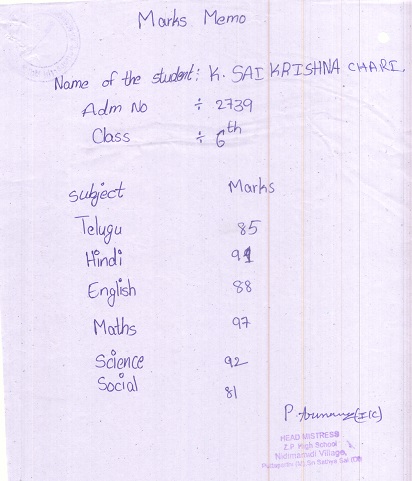 Marks Memo
Name of the student: K. SAI KRISHNA CHARI.
Adm No ÷ 2739
Class ÷ 6th
Subject Marks
Telugu 85
Hindi 91
English 88
Maths 97
Science 92
Social 81
P. (I/C)
HEAD MISTRESS
Z.P. High School
Nidimamidi Village,
Puttaparthi (M), Sri Sathya Sai (Dt)